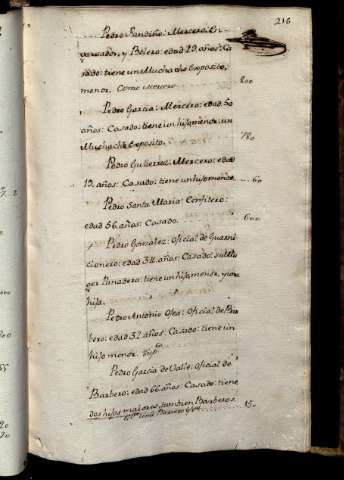 216
Pedro Sandiño: Mercero: En
y Bolero: edad 29. años: Ca
sado: tiene un Muchacho Exposito,
menor. Como Mercero 800
Pedro Garcia: Mercero: edad 50
años: Casado: tiene un hijo menor: un
Muchacho Exposito. 780
Pedro Gutierrez: Mercero: edad
19. años: Casado: tiene un hijo menor. 60
Pedro Santa Maria: Confitero:
edad 56. años: Casado. 600
Pedro Gonzalez: Oficial de Guarni
cionero: edad 34. años: Casado: su Mu
ger Panadera: tiene un hijo menor, y una
hija.
Pedro Antonio Oso: Oficial de Bar
bero: edad 32. años: Casado: tiene un
hijo menor.
Pedro Garcia de Valle: Oficial de
Barbero: edad 66. años: Casado: tiene
dos hijos maiores, tambien Barberos
15